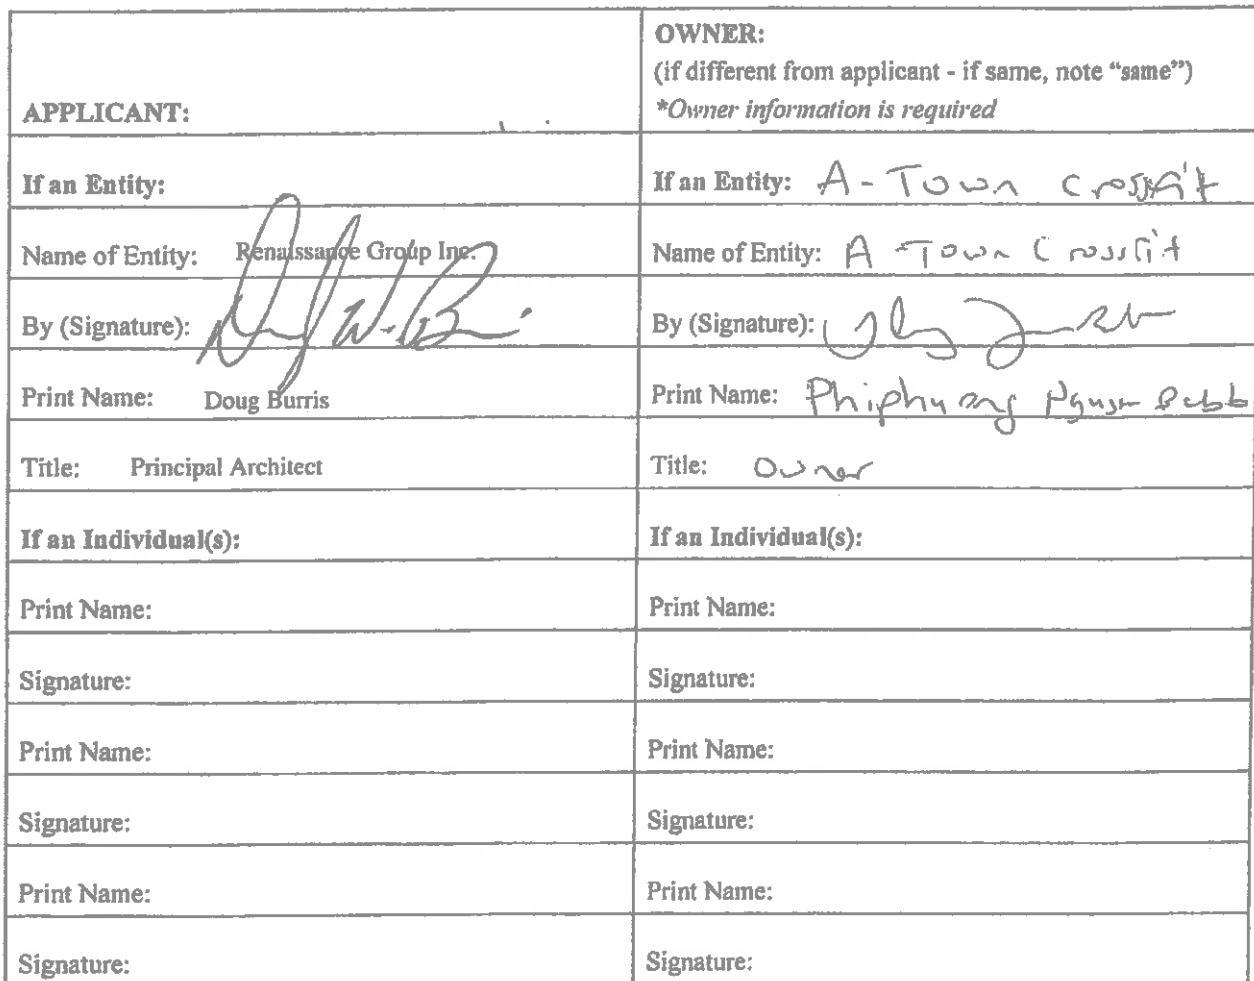 APPLICANT:
OWNER:
(if different from applicant - if same, note “same”)
*Owner information is required
If an Entity:
If an Entity: A-Town Crossfit
Name of Entity: Renaissance Group Inc.
Name of Entity: A-Town Crossfit
By (Signature):
By (Signature):
Print Name: Doug Burris
Print Name: Phiphuong
Title: Principal Architect
Title: Owner
If an Individual(s):
If an Individual(s):
Print Name:
Print Name:
Signature:
Signature:
Print Name:
Print Name:
Signature:
Signature:
Print Name:
Print Name:
Signature:
Signature: